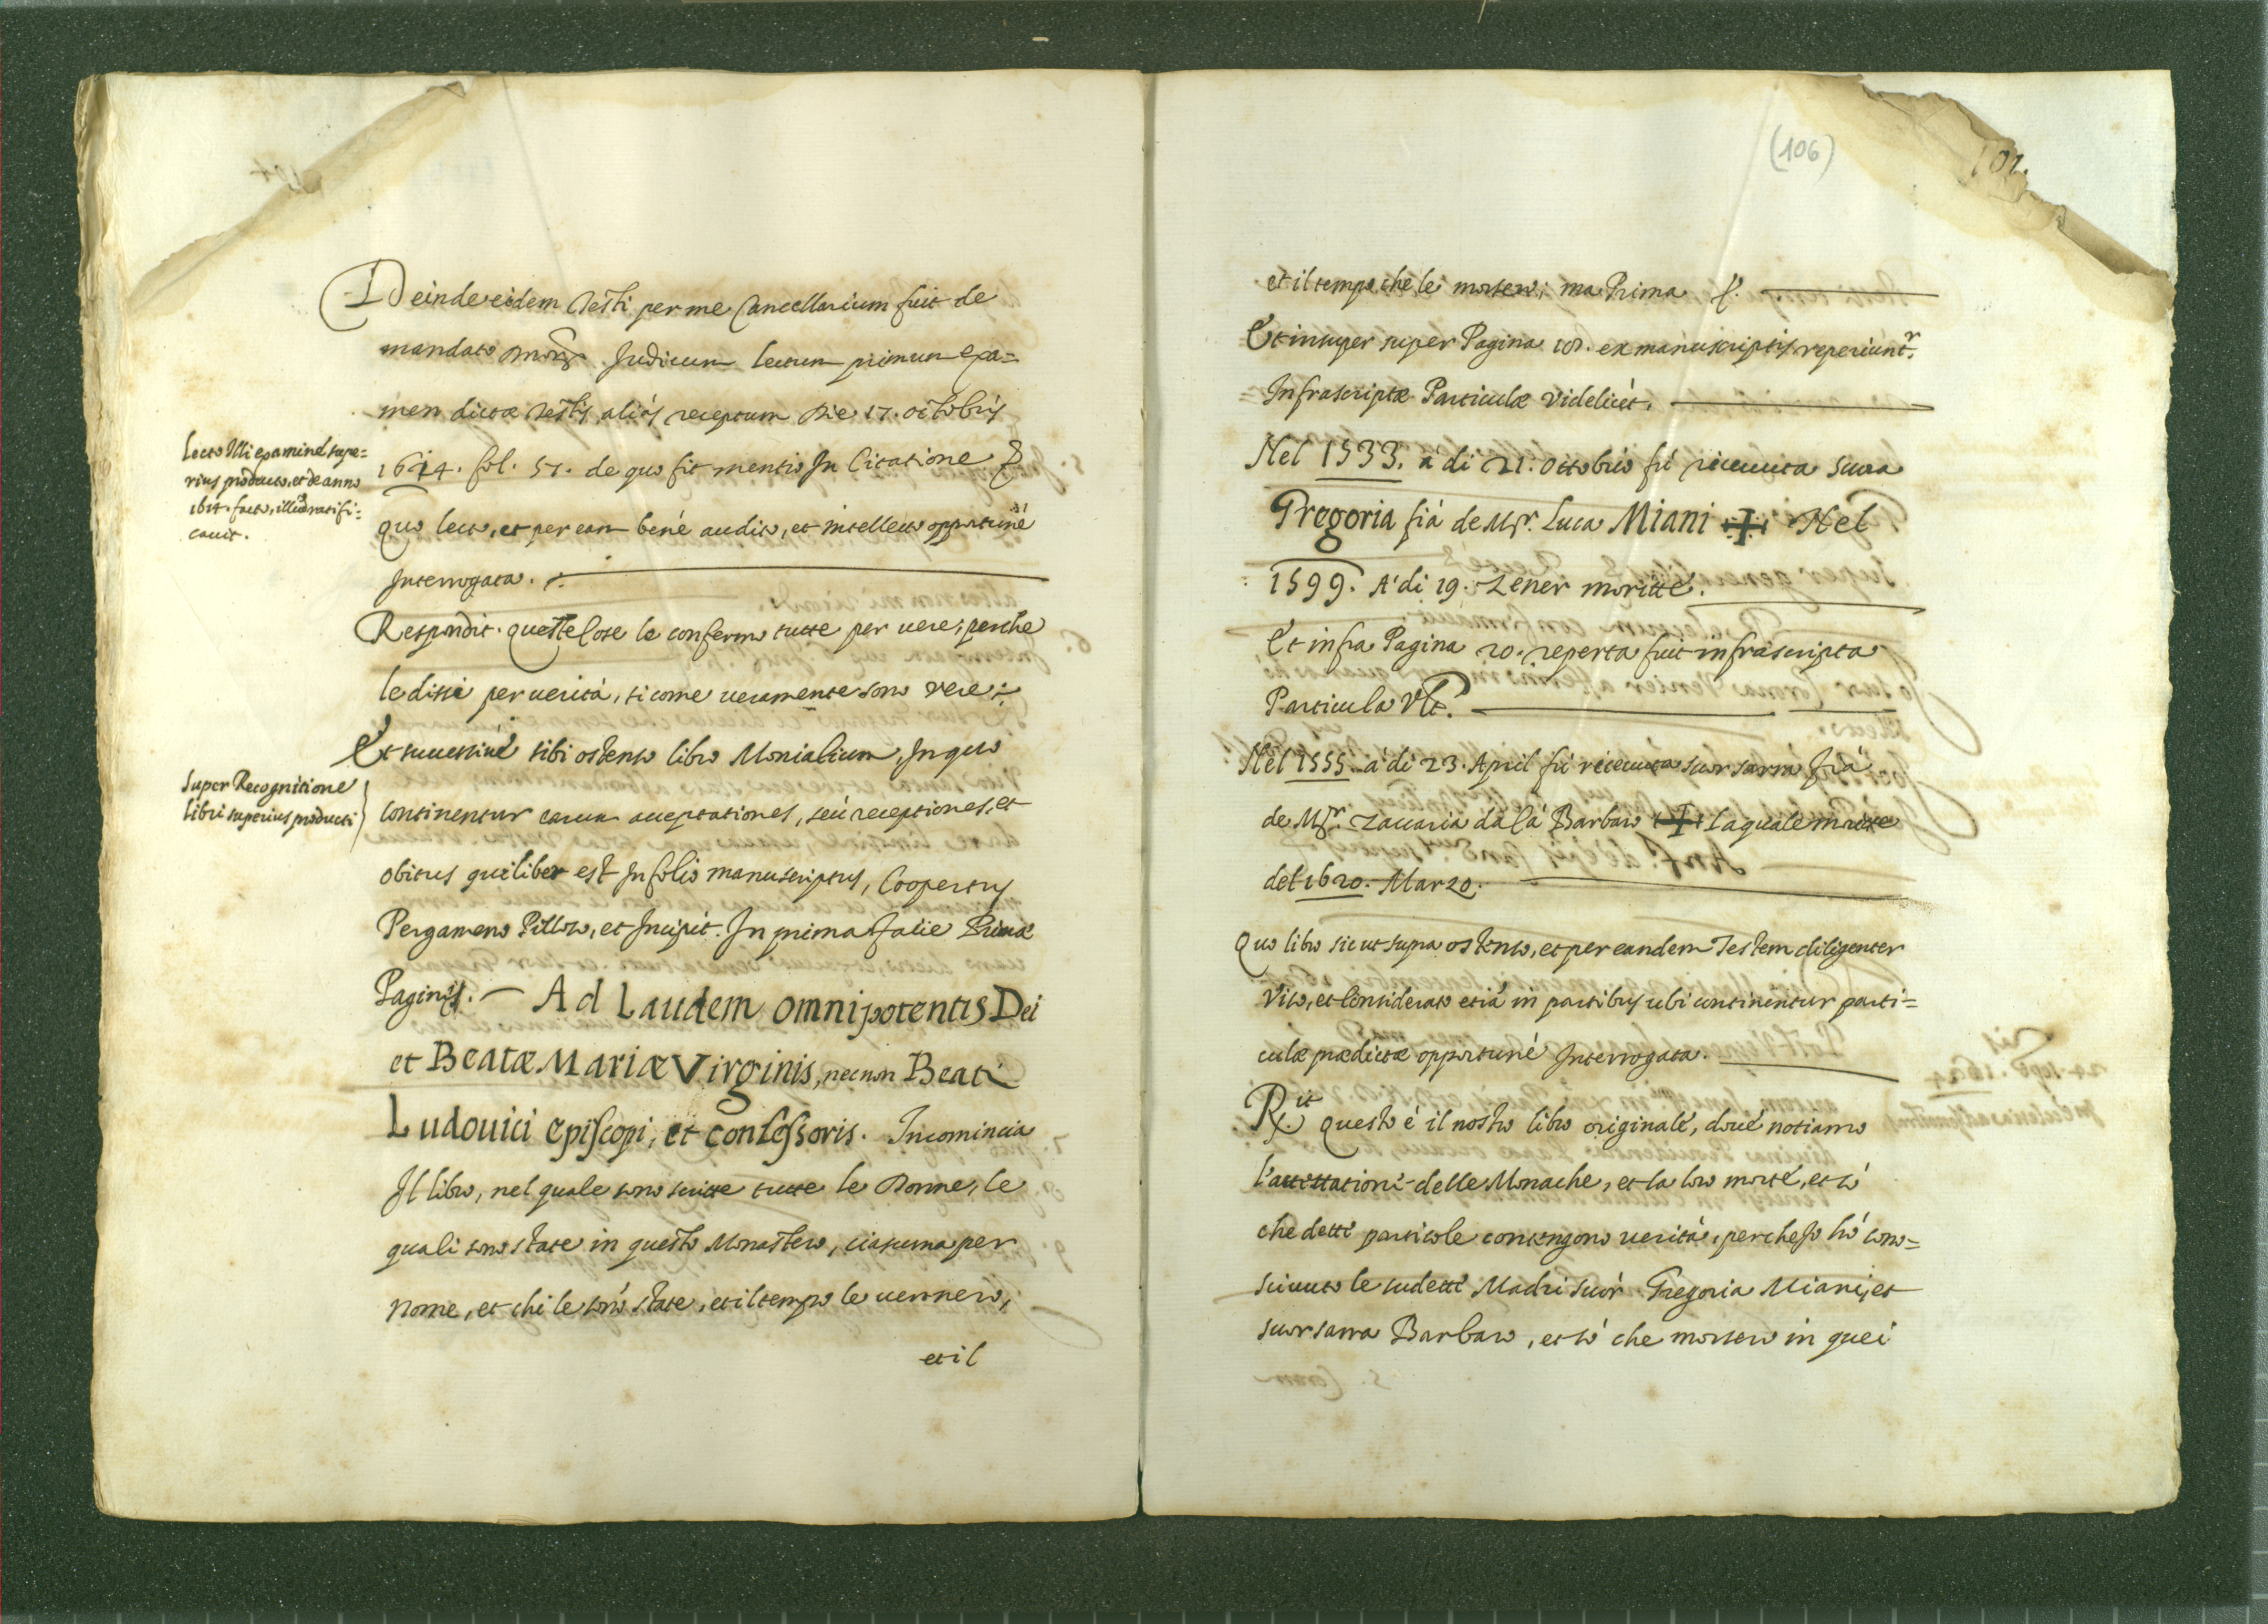 Deinde eidem Testi per me Cancellarium fuit de
mandato Judicum lectum primum exa=
men dictæ Testis aliàs receptum die 17. octobris
1614. fol. 51. de quo fit mentio In Citatione
quo lecto, et per eam benè audito, et intellecto opportunè
Interrogata.
Respondit. queste cose le confermo tutte per vere, perche
le dissi per verità, si come veramente sono vere.
Et successivè sibi ostenso libro Monialium, In quo
continentur earum acceptationes, seù receptiones, et
obitus qui liber est In folio manuscriptus, Coopertus
Pergameno, et Incipit. In prima facie Primæ
Paginæ. — Ad Laudem omnipotentis Dei
et Beatæ Mariæ Virginis, necnon Beati
Ludouici episcopi, et confessoris. Incomincia
Il libro, nel quale sono scritte tutte le Donne, le
quali sono state in questo Monastero, ciascuna per
nome, et chi le sono state, et il tempo le vennero,
et il
Lecto Illi examine supe=
rius producto, et de anno
1614. facto, illud ratifi=
cavit.
Super Recognitione
libri superius producti
(106)
101.
et il tempo che le morsero; ma Prima
Et insuper super Pagina ex manuscriptis reperiunt.r
Infrascriptæ Particulæ videlicèt.
Nel 1533. a di 21. Ottobrio fù riceuuta Suora
Gregoria fià de Mſr. Luca Miani ✠ Nel
1599. A' di 19. Zener moritte.
Et infra Pagina 20. reperta fuit infrascripta
Particula Vt.
Nel 1555. a' di 23. April fù riceuuta suor sarra fià
de Mſr. Zaccaria da là Barbaro ✠ La quale moritte
del 1620. Marzo.
Quo libro sicut supra ostenso, et per eandem Testem diligenter
viso, et Considerato etiā in partibus ubi continentur parti=
culæ prædictæ opportunè Interrogata.
R.it Questo é il nostro libro originale, doue notiamo
l'accettationi delle Monache, et la loro morte, et sò
che dette particole contengono verità, perche Io hò cono=
sciuuto le sudette Madri suor Gregoria Miani, et
suor sarra Barbaro, et sò che morsero in quei